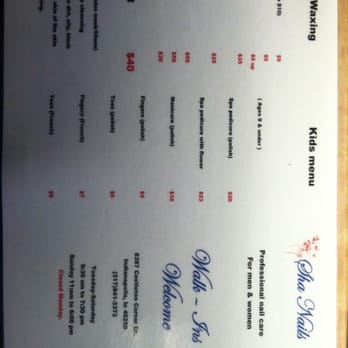 Waxing
$35
$25
$30
$40
Kids menu
( Ages 9 & under )
Spa pedicure (polish) $20
Spa pedicure with flower $23
Manicure (polish) $10
Fingers (polish) $4
Toes (polish) $5
Fingers (French) $7
Toes (French)
Sha Nails
Professional nail care
For men & women
Walk ~ Ins
Welcome
8387 Castleton Corner Dr.
Indianapolis, In 46250
(317)841-3373
Tuesday-Saturday
9:30 am to 7:30 pm
Sunday 11am to 5:00 pm
Closed Monday.